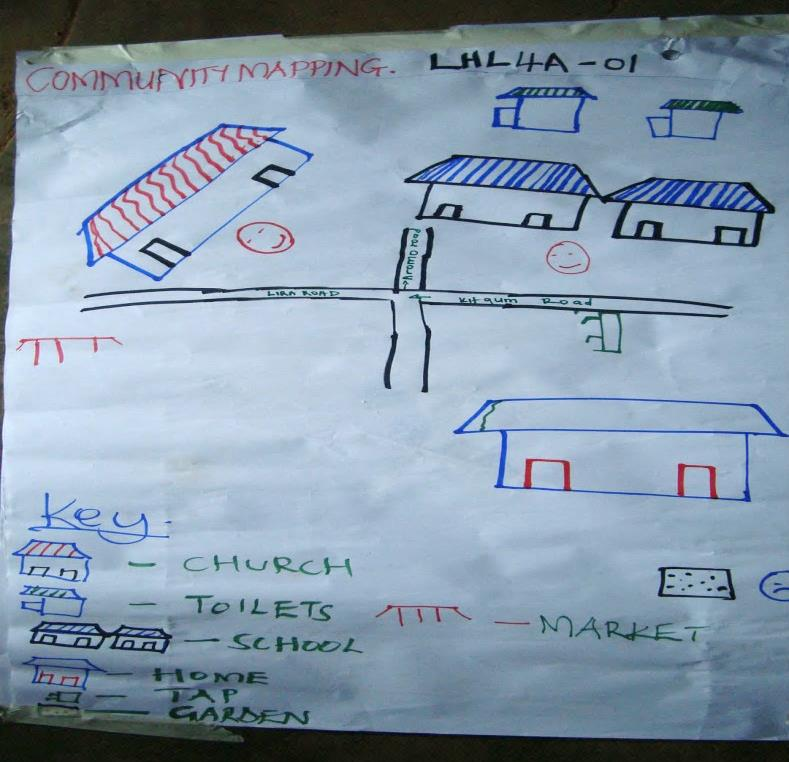 COMMUNITY MAPPING. LHL4A-01
LIRA ROAD
Kitgum Road
Key.
- CHURCH
- TOILETS
- MARKET
- SCHOOL
- HOME
- TAP
- GARDEN